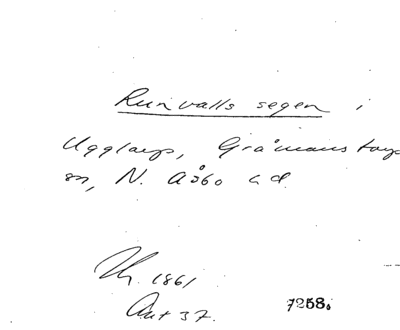 Runvalls segen i
Ugglarp, Gråmanstorps
sn, N. Åsbo hd.
1861
37.
7258.